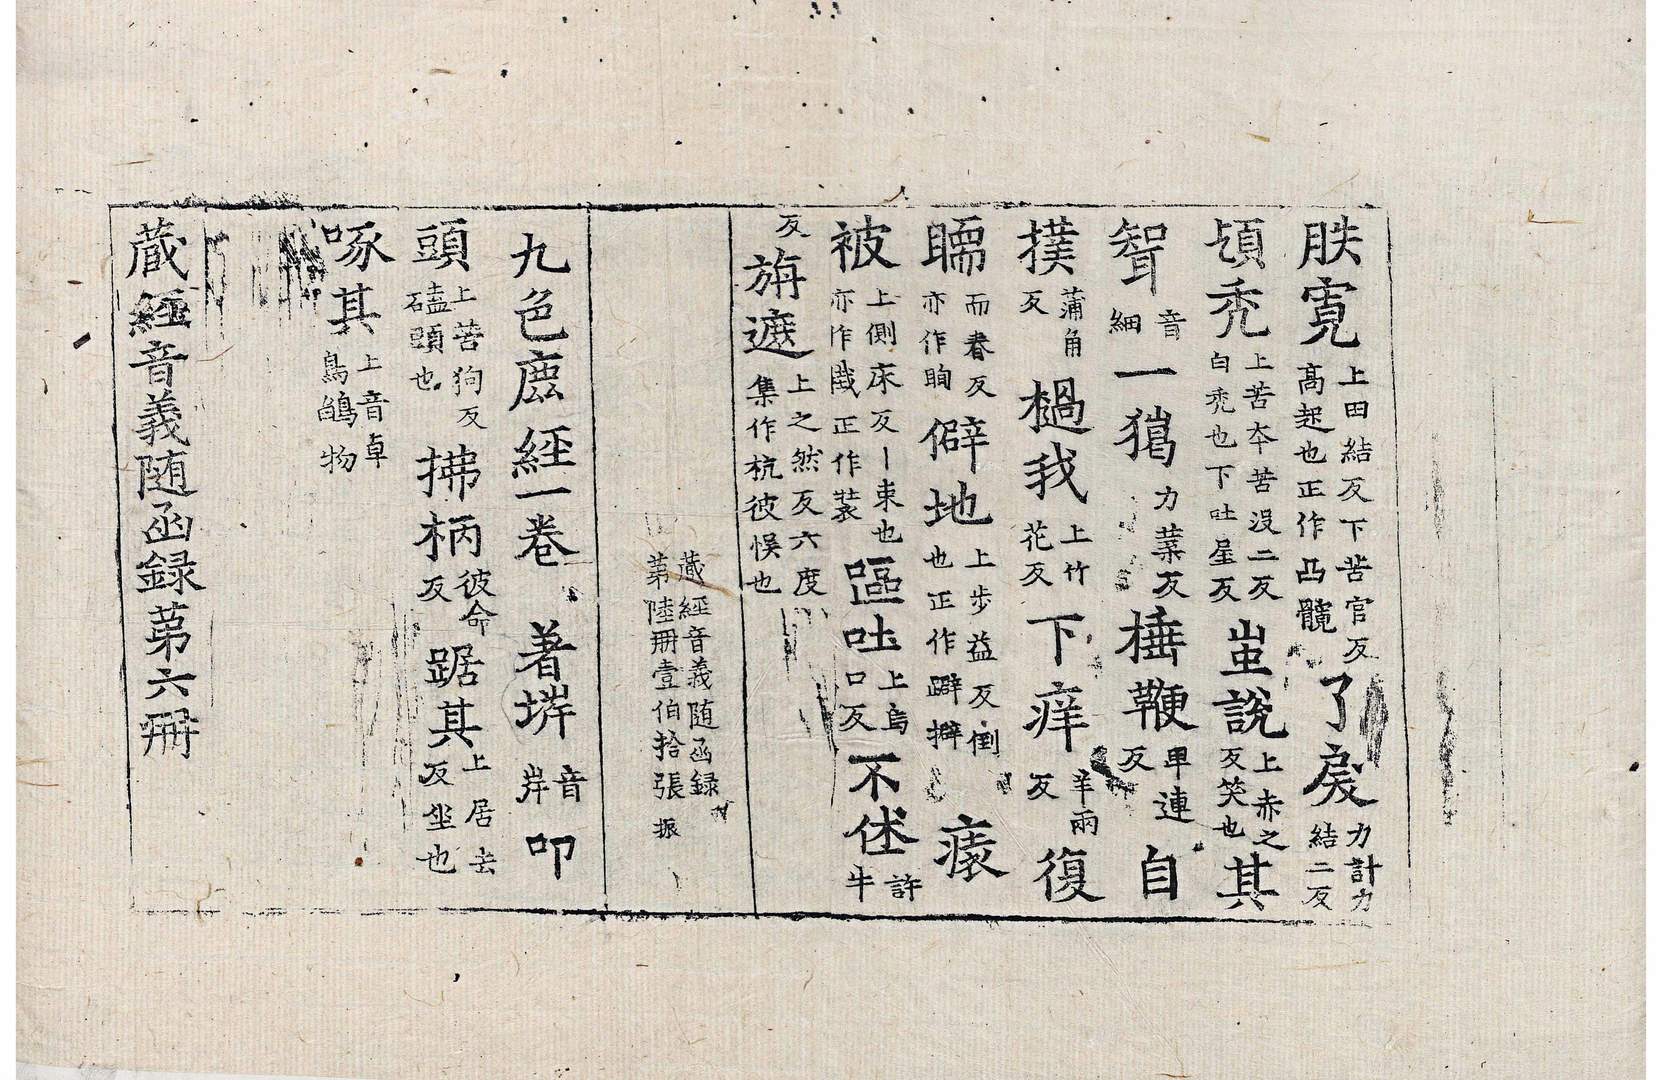 胅寬上田結反下苦官反髙起也正作凸髖了戾力計力結二反
頓禿上苦夲苦没二反白禿也下吐屋反蚩說上赤之反笑也其
聟音細一猲力葉反捶鞭卑連反自
撲蒲角反檛我上竹花反下痒羊兩反復
瞤而春反亦作眴僻地上步益反倒也正作躃擗㾗
被上側床反丨束也亦作戕正作裝嘔吐上烏口反不㤕許牛
反旃遮上之然反六度集作杭彼悮也
蔵經音義随函録第陸冊壹伯拾張振
九色鹿經一卷 著㟁音岸叩
頭上苦狗反磕頭也拂柄彼命反踞其上居去反坐也
啄其上音卓鳥鵮物
蔵經音義随函録第六冊